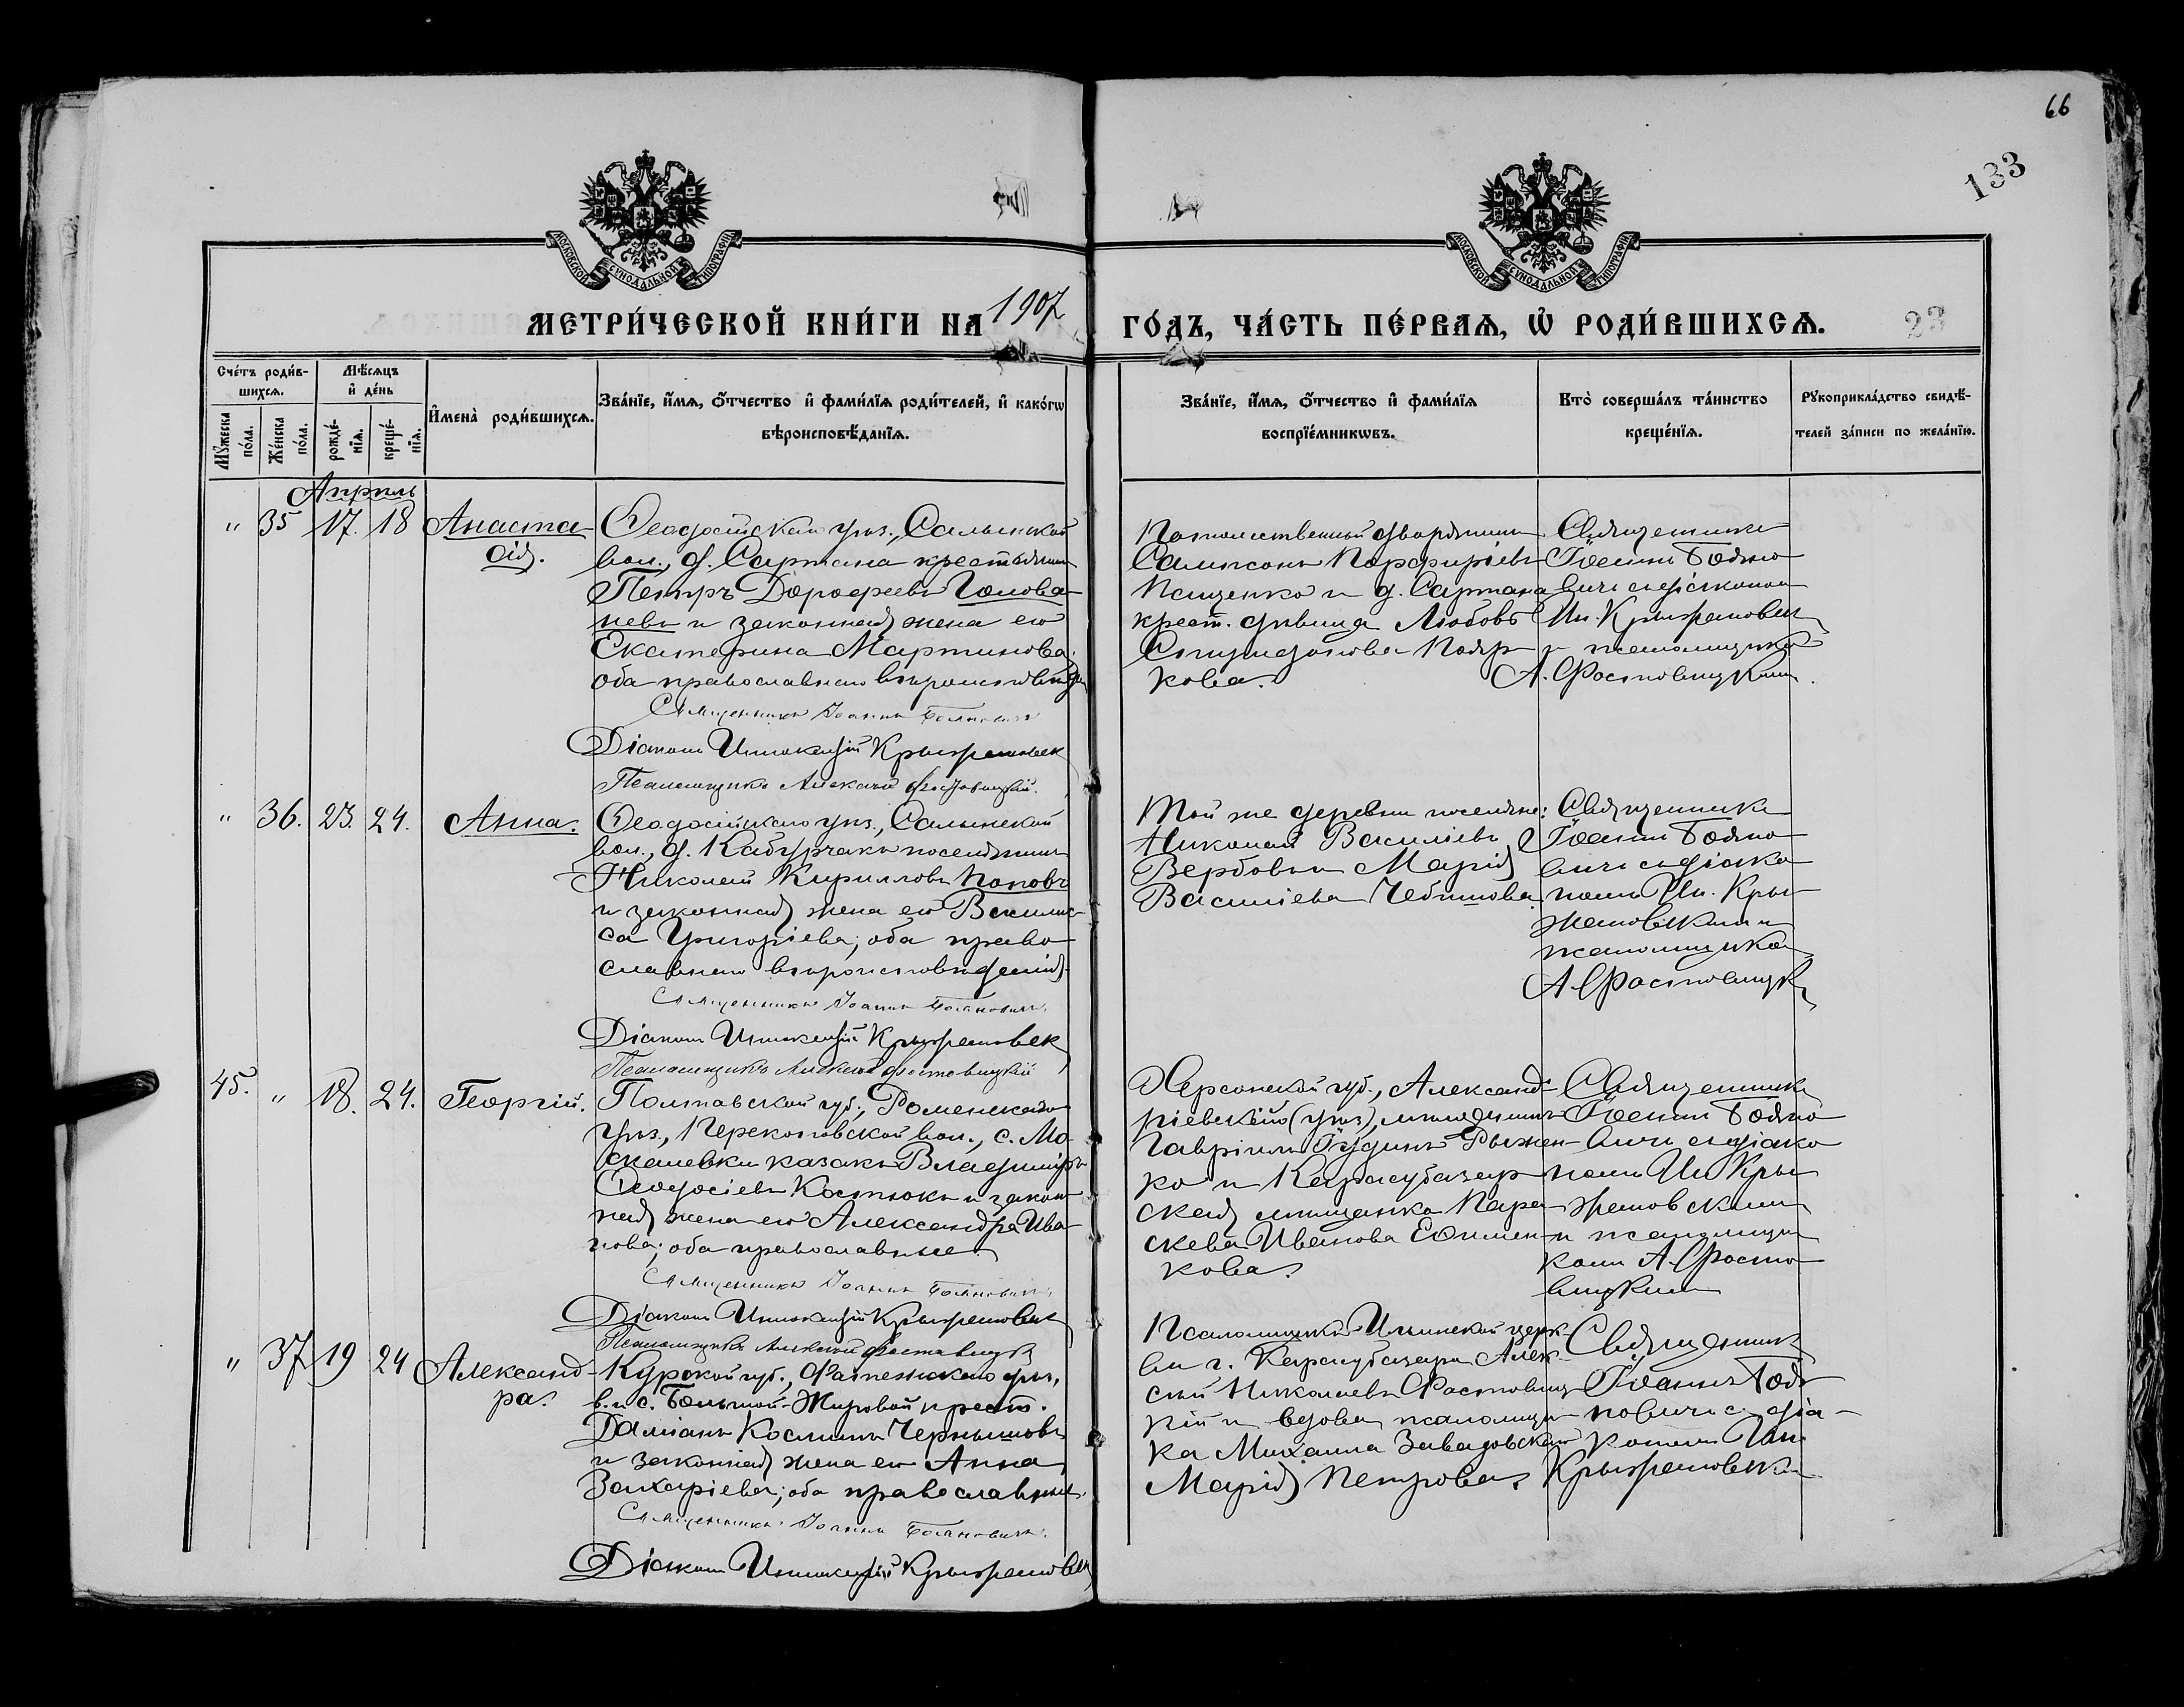 66
133
МОСКОВСКОЙ СѴНОДАЛЬНОЙ ТИПОГРАФІИ
МОСКОВСКОЙ СѴНОДАЛЬНОЙ ТИПОГРАФІИ
МЕТРИ́ЧЕСКОЙ КНИ́ГИ НА 1907 ГО́ДЪ, ЧА́СТЬ ПЕ́РВАѦ, Ѡ҆ РОДИ́ВШИХСѦ.
23
Сче́тъ роди́в-
шихсѧ.
Мꙋ́жеска по́ла.
Же́нска по́ла.
Мѣ́сѧцъ
и҆ де́нь
рожде́-
нїѧ.
креще́-
нїѧ.
И҆мена̀ роди́вшихсѧ.
Зва́нїе, и҆́мѧ, ѻ҆́тчество и҆ фами́лїѧ роди́телей, и҆ како́гѡ
вѣроисповѣ́данїѧ.
Зва́нїе, и҆́мѧ, ѻ҆́тчество и҆ фами́лїѧ
воспрїе́мникѡвъ.
Кто̀ соверша́лъ та́инство
креще́нїѧ.
Рꙋкоприкла́дство свидѣ́-
телей за́писи по жела́нїю.
Апрѣль
" 35 17. 18 Анаста-
сія.
Ѳеодосійскаго уѣз., Салынской
вол., д. Сартана крестьянинъ
Петръ Дороѳеевъ Голова-
невъ и законная жена его
Екатерина Мартинова;
оба православнаго вѣроисповѣд.
Священникъ Іоаннъ Бояновичъ
Діаконъ Иннокентій Крыжановск
Псаломщикъ Алексѣй Ростовицкій.
Потомственный дворянинъ
Сампсонъ Порфиріевъ
Пащенко и д. Сартана
крест. дѣвица Любовь
Спиридонова Подр-
кова.
Священникъ
Іоаннъ Бояно-
вичъ съ діакономъ
Ин. Крыжановским
и псаломщикомъ
А. Ростовицкимъ.
" 36. 23. 24. Анна.
Ѳеодосійскаго уѣз., Салынской
вол., д. Кабурчакъ поселянинъ
Николай Кирилловъ Поповъ
и законная жена его Васили-
са Григоріева; оба право-
славнаго вѣроисповѣданія.
Священникъ Іоаннъ Бояновичъ.
Діаконъ Иннокентій Крыжановск
Псаломщикъ Алексѣй Ростовицкій
Той же деревни поселяне:
Николай Василіевъ
Вербовъ и Марія
Василіева Чебышова.
Священникъ
Іоаннъ Бояно-
вичъ съ діако-
номъ Ин. Кры-
жановскимъ и
псаломщикомъ
А. Ростовицк
45. " 18. 24. Георгій.
Полтавской губ., Роменскаго
уѣз., Перекоповской вол., с. Мо-
скалевки казакъ Владиміръ
Ѳеодосіевъ Костюкъ и закон-
ная жена его Александра Ива-
нова; оба православные.
Священникъ Іоаннъ Бояновичъ.
Діаконъ Иннокентій Крыжановск
Псаломщикъ Алексѣй Ростовицк
Херсонской губ., Александ-
ріевскаго (уѣз), мѣщанинъ
Гавріилъ Гудинъ Рыжен-
ко и Карасубазар-
ская мѣщанка Пара-
скева Иванова Ефимен-
кова.
Священник
Іоаннъ Бояно-
вичъ съ діако-
номъ Ин. Кры-
жановскимъ
и псаломщи-
комъ А. Росто-
вицкимъ
" 37 19 24 Александ-
ра.
Курской губ., Фатежскаго уѣз.,
в. и с. Большой-Жировой крест.
Даміанъ Косминъ Чернышовъ
и законная жена его Анна
Захаріева; оба православны.
Священникъ Іоаннъ Бояновичъ.
Діаконъ Иннокентій Крыжановск
Псаломщикъ Ильинской церк-
ви г. Карасубазара Алек-
сѣй Николаевъ Ростовиц-
кій и вдова псаломщи-
ка Михаила Завадовскаго
Марія Петрова.
Священник
Іоаннъ Боя-
новичъ с діа-
кономъ Ин.
Крыжановским